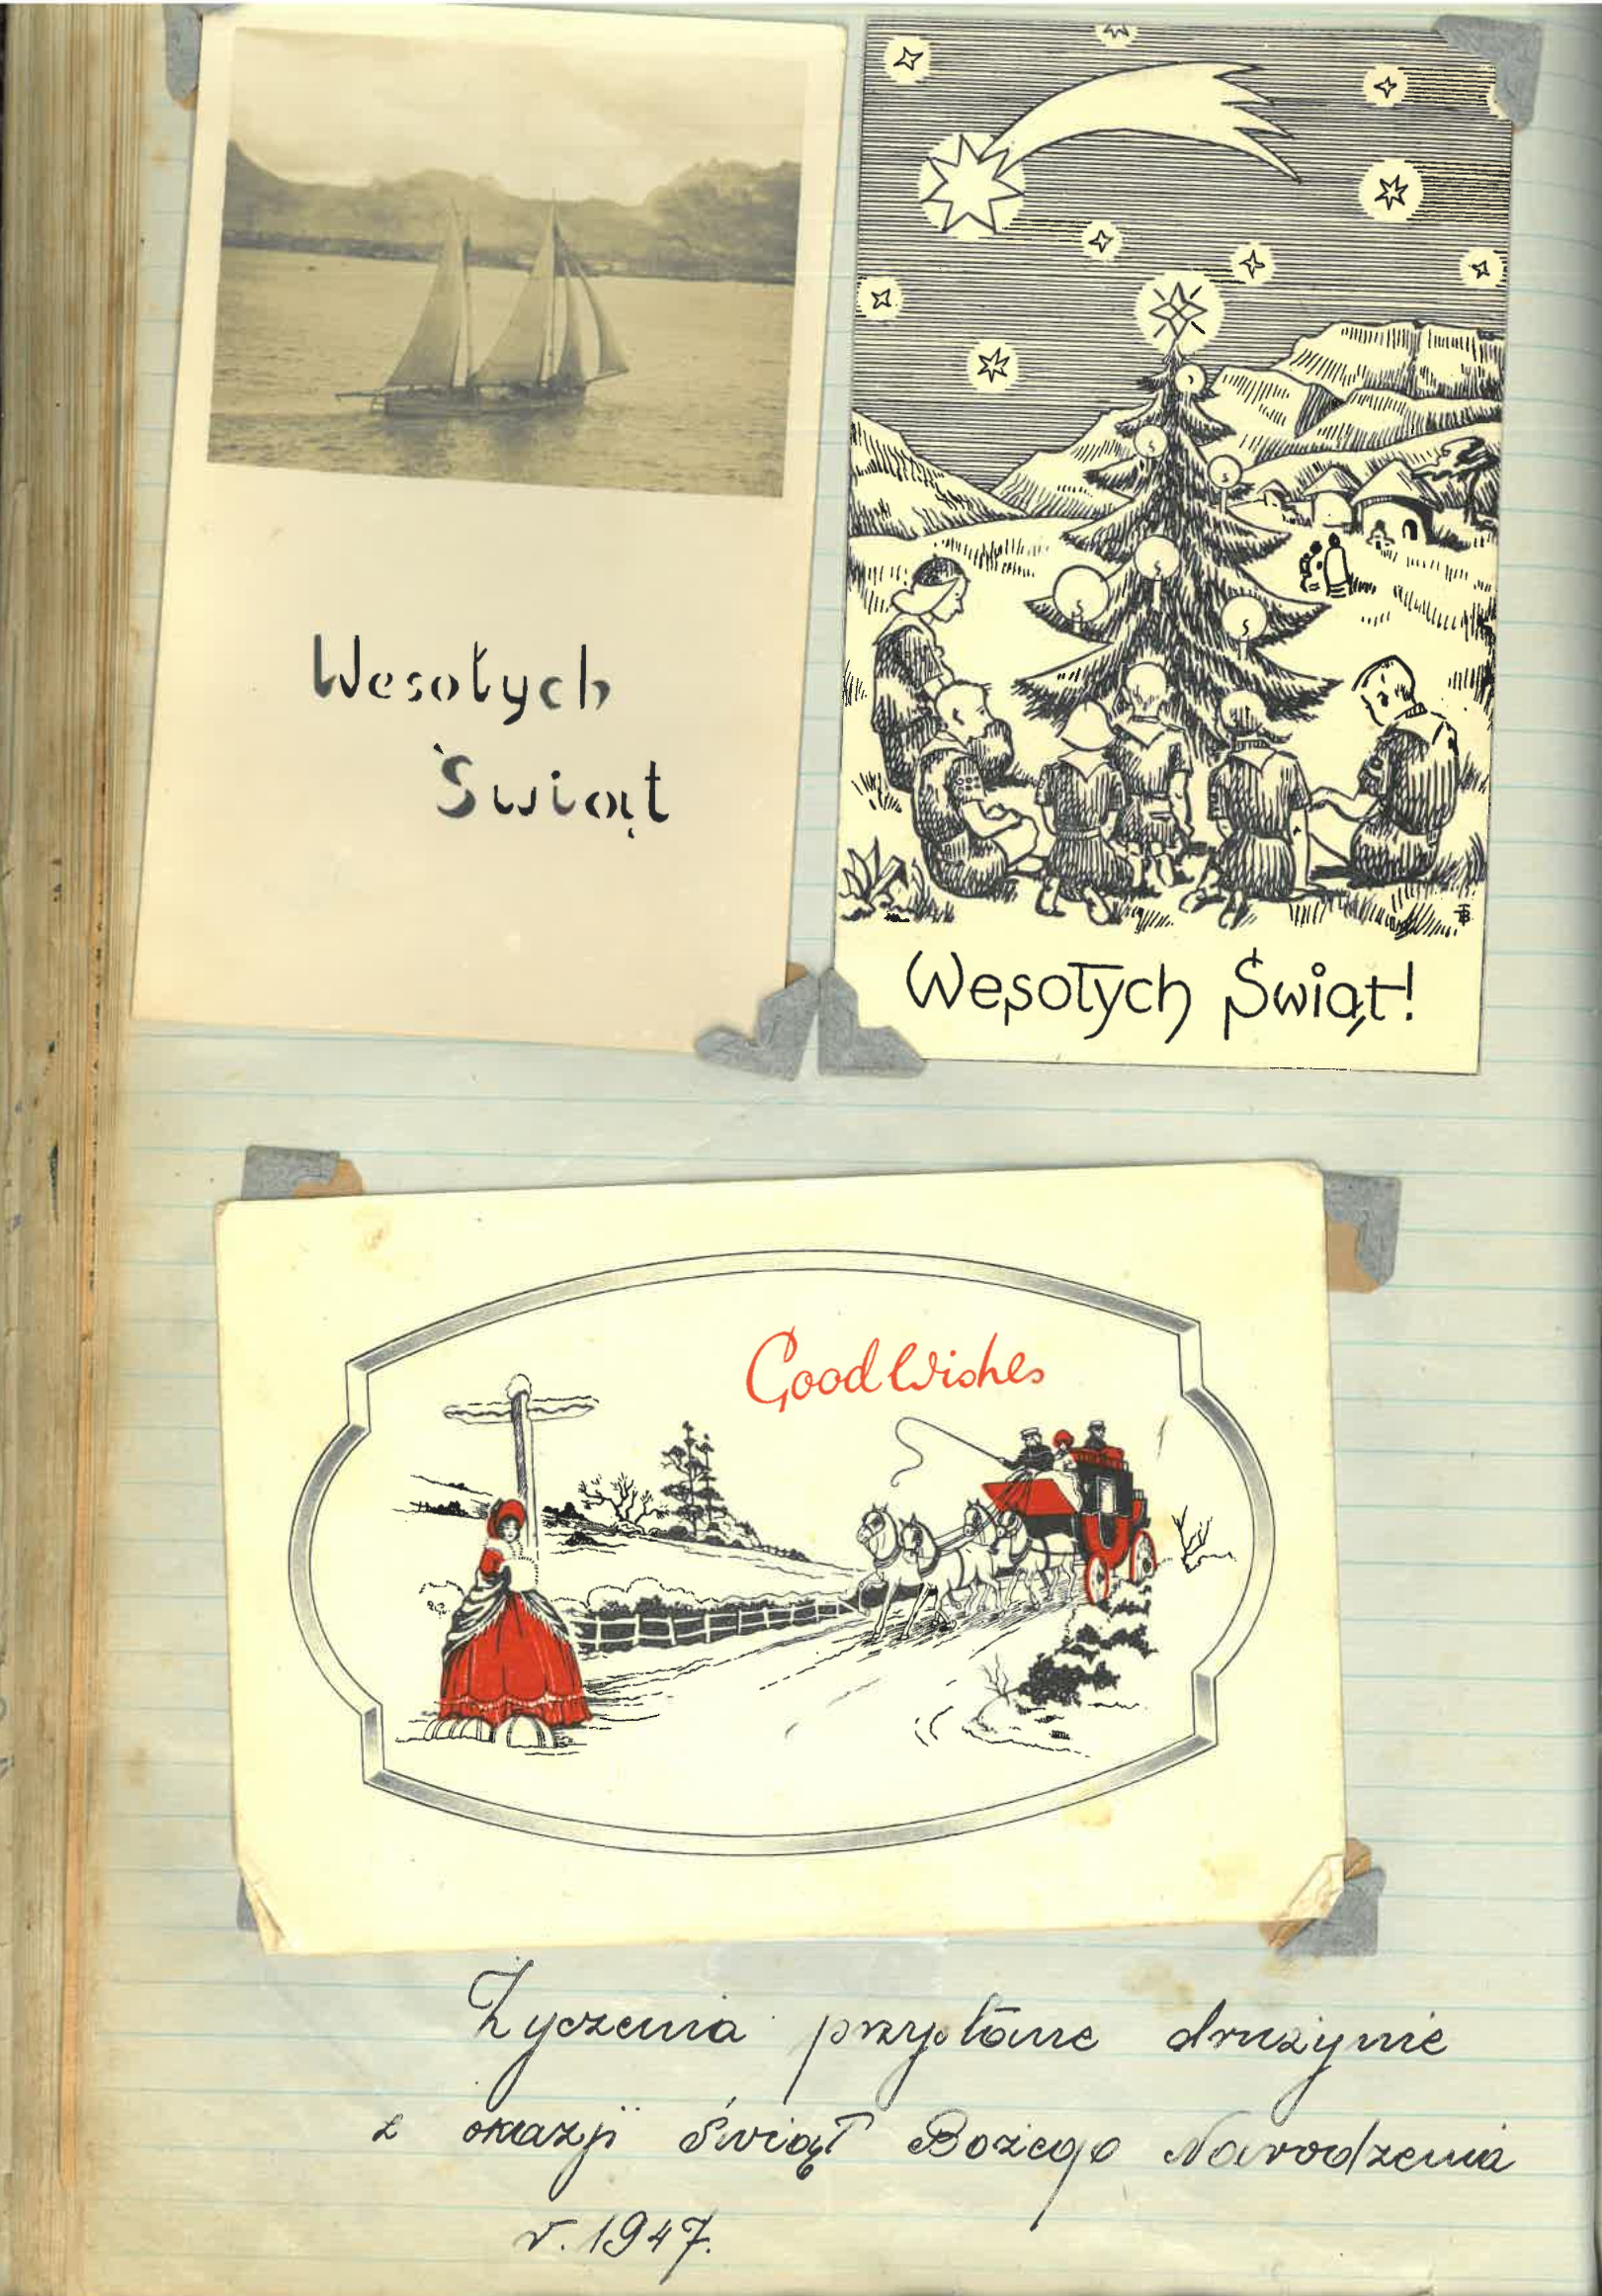 Wesołych
Świąt
Wesołych Świąt!
Good Wishes
Życzenia przysłane drużynie
z okazji Świąt Bożego Narodzenia
r. 1947.